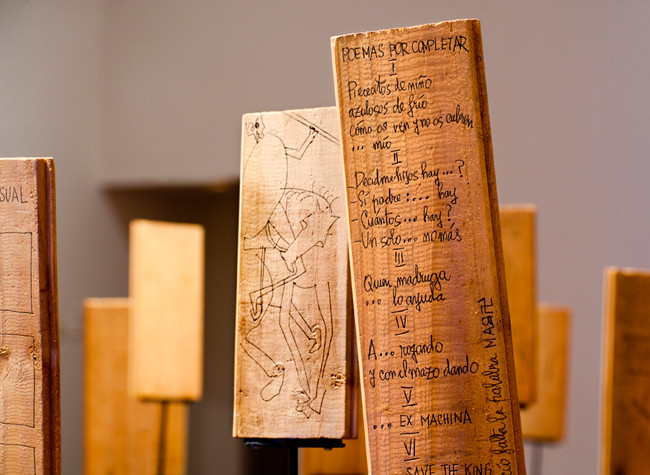 SUAL
POEMAS POR COMPLETAR
I
Piececitos de niño
azulosos de frío
cómo os ven y no os cubren
... mío
II
Decidme hijos hay ...?
-Sí padre: ... hay
Cuántos ... hay?
-Un solo ... nomás
III
Quien madruga
... lo ayuda
IV
A ... rogando
y con el mazo dando
V
... EX MACHINA
VI
SAVE THE KING
falta la palabra